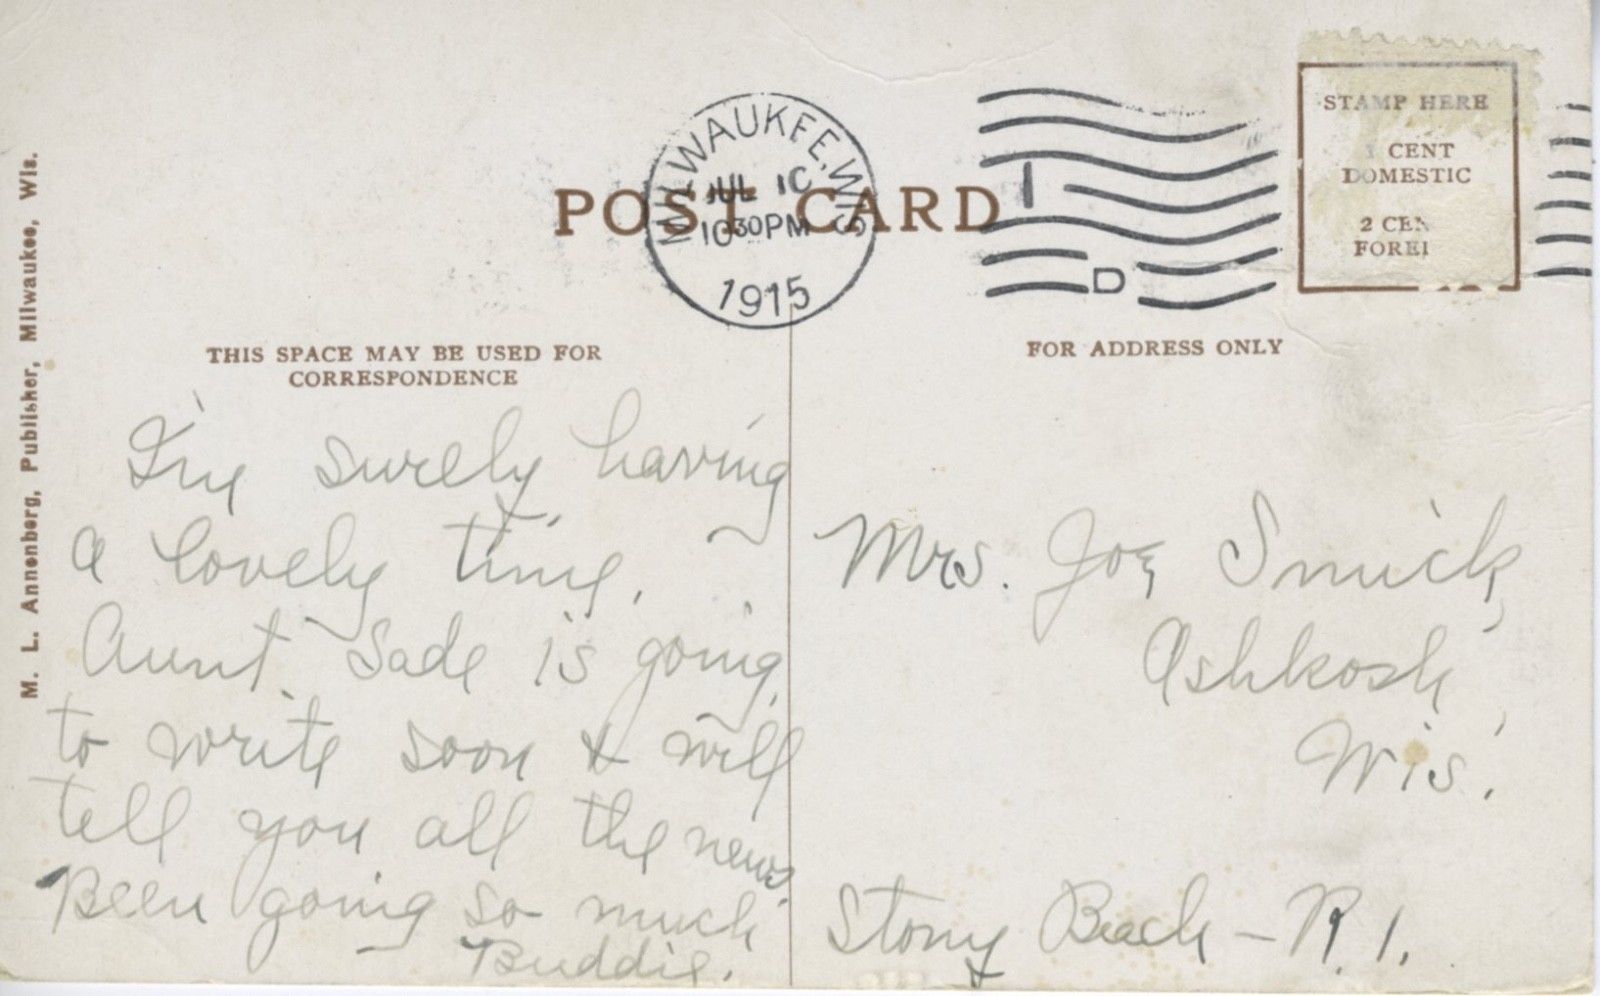 MILWAUKEE, WIS.
JUL 10
10 30PM
1915
POST CARD
1
D
STAMP HERE
1 CENT
DOMESTIC
2 CEN
FOREI
M. L. Annenberg, Publisher, Milwaukee, Wis.
THIS SPACE MAY BE USED FOR
CORRESPONDENCE
FOR ADDRESS ONLY
I'm surely having
a lovely time.
Aunt Sade is going
to write soon & will
tell you all the news.
Been going so much
Buddie.
Mrs. Joe Smick,
Oshkosh,
Wis.
Stony Beach - R. 1.